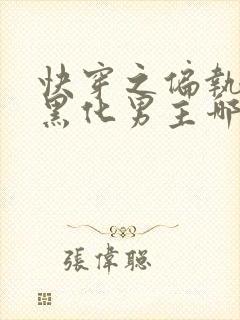 快穿之偏執
黑化男主哪
張偉聰